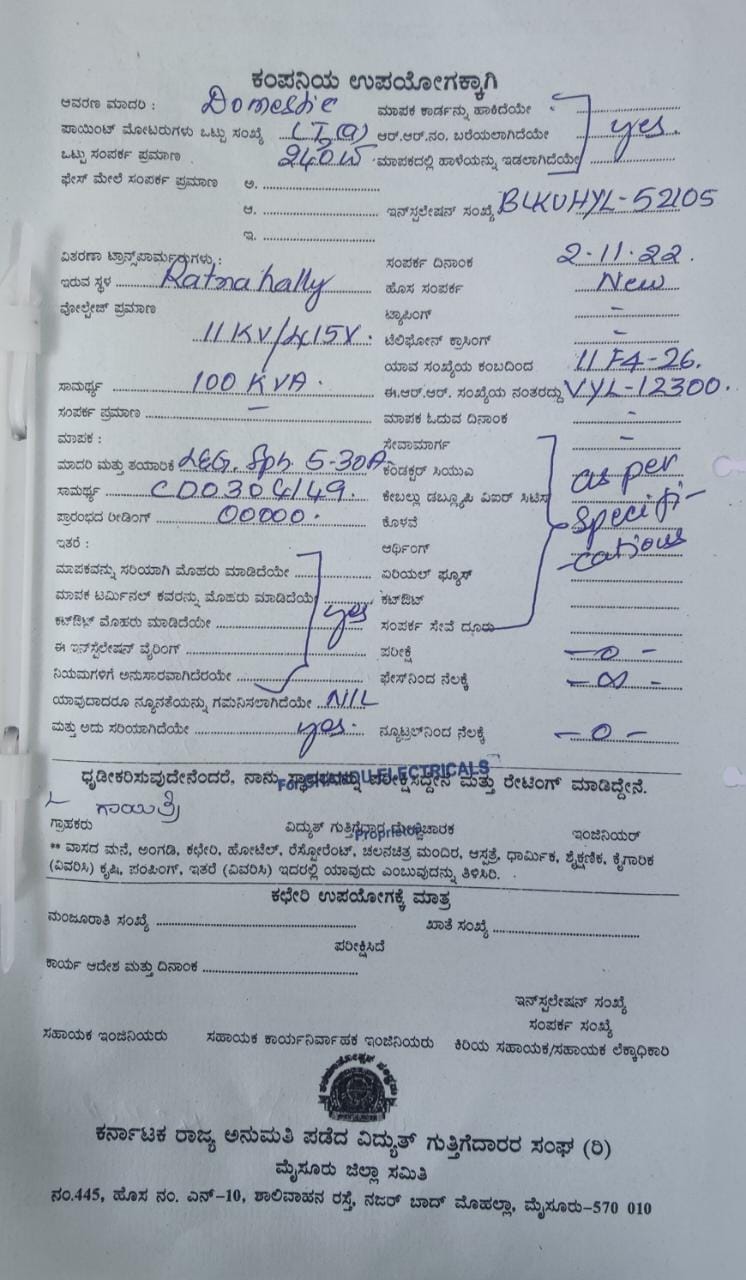 ಕಂಪನಿಯ ಉಪಯೋಗಕ್ಕಾಗಿ
ಆವರಣ ಮಾದರಿ : Domestic ಮಾಪಕ ಕಾರ್ಡನ್ನು ಹಾಕಿದೆಯೇ :
ಪಾಯಿಂಟ್ ಮೋಟರುಗಳು ಒಟ್ಟು ಸಂಖ್ಯೆ ಆರ್.ಆರ್.ನಂ. ಬರೆಯಲಾಗಿದೆಯೇ yes.
ಒಟ್ಟು ಸಂಪರ್ಕ ಪ್ರಮಾಣ 240W ಮಾಪಕದಲ್ಲಿ ಹಾಳೆಯನ್ನು ಇಡಲಾಗಿದೆಯೇ
ಫೇಸ್ ಮೇಲೆ ಸಂಪರ್ಕ ಪ್ರಮಾಣ ಅ.
ಆ. ಇನ್‌ಸ್ಪಲೇಷನ್ ಸಂಖ್ಯೆ BLKVHYL-52105
ಇ.
ವಿತರಣಾ ಟ್ರಾನ್ಸ್‌ಪಾರ್ಮರುಗಳು : ಸಂಪರ್ಕ ದಿನಾಂಕ 2-11-22.
ಇರುವ ಸ್ಥಳ Ratnahally ಹೊಸ ಸಂಪರ್ಕ New
ವೋಲ್ಟೇಜ್ ಪ್ರಮಾಣ ಟ್ಯಾಪಿಂಗ್ -
11KV/415V. ಟೆಲಿಫೋನ್ ಕ್ರಾಸಿಂಗ್ -
ಯಾವ ಸಂಖ್ಯೆಯ ಕಂಬದಿಂದ 11F4-26.
ಸಾಮರ್ಥ್ಯ 100 KVA. ಈ.ಆರ್.ಆರ್. ಸಂಖ್ಯೆಯ ನಂತರದ್ದು VYL-12300.
ಸಂಪರ್ಕ ಪ್ರಮಾಣ - ಮಾಪಕ ಓದುವ ದಿನಾಂಕ -
ಮಾಪಕ : ಸೇವಾಮಾರ್ಗ -
ಮಾದರಿ ಮತ್ತು ತಯಾರಿಕೆ L&G. Sph. 5-30A ಕಂಡಕ್ಟರ್ ಸಿಯುವಿ as per
ಸಾಮರ್ಥ್ಯ CD0304149. ಕೇಬಲ್ಲು ಡಬ್ಲ್ಯೂಪಿ ವಿಐರ್ ಸಿಟಿಸಿ
ಪ್ರಾರಂಭದ ರೀಡಿಂಗ್ 00000. ಕೊಳವೆ specifi-
ಇತರೆ : ಆರ್ಥಿಂಗ್ -cations
ಮಾಪಕವನ್ನು ಸರಿಯಾಗಿ ಮೊಹರು ಮಾಡಿದೆಯೇ ಏರಿಯಲ್ ಫ್ಯೂಸ್
ಮಾಪಕ ಟರ್ಮಿನಲ್ ಕವರನ್ನು ಮೊಹರು ಮಾಡಿದೆಯೇ yes ಕಟ್‌ಔಟ್
ಕಟ್‌ಔಟ್ ಮೊಹರು ಮಾಡಿದೆಯೇ ಸಂಪರ್ಕ ಸೇವೆ ದೂರು
ಈ ಇನ್‌ಸ್ಟಲೇಷನ್ ವೈರಿಂಗ್ ಪರೀಕ್ಷೆ -0-
ನಿಯಮಗಳಿಗೆ ಅನುಸಾರವಾಗಿದೆರಯೇ ಫೇಸ್‌ನಿಂದ ನೆಲಕ್ಕೆ -∞-
ಯಾವುದಾದರೂ ನ್ಯೂನತೆಯನ್ನು ಗಮನಿಸಲಾಗಿದೆಯೇ NIL
ಮತ್ತು ಅದು ಸರಿಯಾಗಿದೆಯೇ yes. ನ್ಯೂಟ್ರಲ್‌ನಿಂದ ನೆಲಕ್ಕೆ -0-
ಧೃಡೀಕರಿಸುವುದೇನೆಂದರೆ, ನಾನು ಸ್ಥಾವರವನ್ನು ಪರೀಕ್ಷಿಸಿದ್ದೇನೆ ಮತ್ತು ರೇಟಿಂಗ್ ಮಾಡಿದ್ದೇನೆ.
ELECTRICALS
ಗಾಯಿತ್ರಿ
ಗ್ರಾಹಕರು ವಿದ್ಯುತ್ ಗುತ್ತಿಗೆದಾರ ಮೇಲ್ವಿಚಾರಕ ಇಂಜಿನಿಯರ್
Proprietor
** ವಾಸದ ಮನೆ, ಅಂಗಡಿ, ಕಛೇರಿ, ಹೋಟೆಲ್, ರೆಸ್ಟೋರೆಂಟ್, ಚಲನಚಿತ್ರ ಮಂದಿರ, ಆಸ್ಪತ್ರೆ, ಧಾರ್ಮಿಕ, ಶೈಕ್ಷಣಿಕ, ಕೈಗಾರಿಕ
(ವಿವರಿಸಿ) ಕೃಷಿ, ಪಂಪಿಂಗ್, ಇತರೆ (ವಿವರಿಸಿ) ಇದರಲ್ಲಿ ಯಾವುದು ಎಂಬುವುದನ್ನು ತಿಳಿಸಿರಿ.
ಕಛೇರಿ ಉಪಯೋಗಕ್ಕೆ ಮಾತ್ರ
ಮಂಜೂರಾತಿ ಸಂಖ್ಯೆ ಖಾತೆ ಸಂಖ್ಯೆ
ಪರೀಕ್ಷಿಸಿದೆ
ಕಾರ್ಯ ಆದೇಶ ಮತ್ತು ದಿನಾಂಕ
ಇನ್‌ಸ್ಪಲೇಷನ್ ಸಂಖ್ಯೆ
ಸಂಪರ್ಕ ಸಂಖ್ಯೆ
ಸಹಾಯಕ ಇಂಜಿನಿಯರು ಸಹಾಯಕ ಕಾರ್ಯನಿರ್ವಾಹಕ ಇಂಜಿನಿಯರು ಕಿರಿಯ ಸಹಾಯಕ/ಸಹಾಯಕ ಲೆಕ್ಕಾಧಿಕಾರಿ
ಕರ್ನಾಟಕ ರಾಜ್ಯ ಅನುಮತಿ ಪಡೆದ ವಿದ್ಯುತ್ ಗುತ್ತಿಗೆದಾರರ ಸಂಘ (ರಿ)
ಮೈಸೂರು ಜಿಲ್ಲಾ ಸಮಿತಿ
ನಂ.445, ಹೊಸ ನಂ. ಎನ್-10, ಶಾಲಿವಾಹನ ರಸ್ತೆ, ನಜರ್ ಬಾದ್ ಮೊಹಲ್ಲಾ, ಮೈಸೂರು-570 010